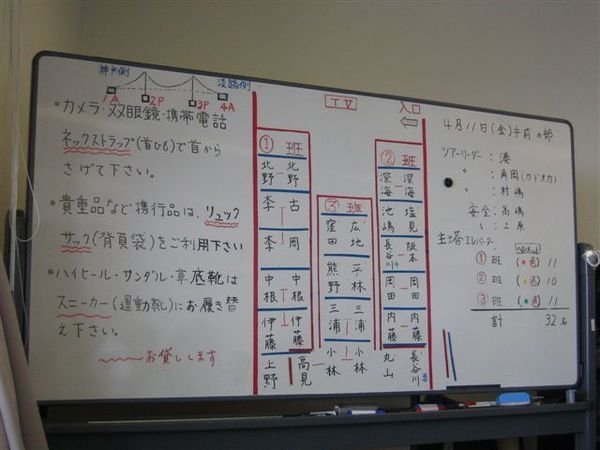 神戸側
淡路側
1A 2P 3P 4A
・カメラ・双眼鏡・携帯電話
ネックストラップ(首ひも)で首から
さげて下さい。
・貴重品など携行品は、リュック
サック(背負袋)をご利用下さい
・ハイヒール・サンダル・革底靴は
スニーカー(運動靴)にお履き替
え下さい。
お貸しします
TV
入口
① 班
北野 北野
李 古
李 周
中根 中根
伊藤 伊藤
上野 高見
③ 班
窪田 広地
熊野 平林
三浦 三浦
小林 小林
② 班
深海 深海
池嶋 塩見
長谷川 阪本
岡田 岡田
内藤 内藤
丸山 長谷川
4月11日(金)午前の部
ツアーリーダー：湊
〃 ：角岡(カドオカ)
〃 ：村嶋
安全：高嶋
：上原
主塔・エレベーター
① 班 11
② 班 10
③ 班 11
計 32名